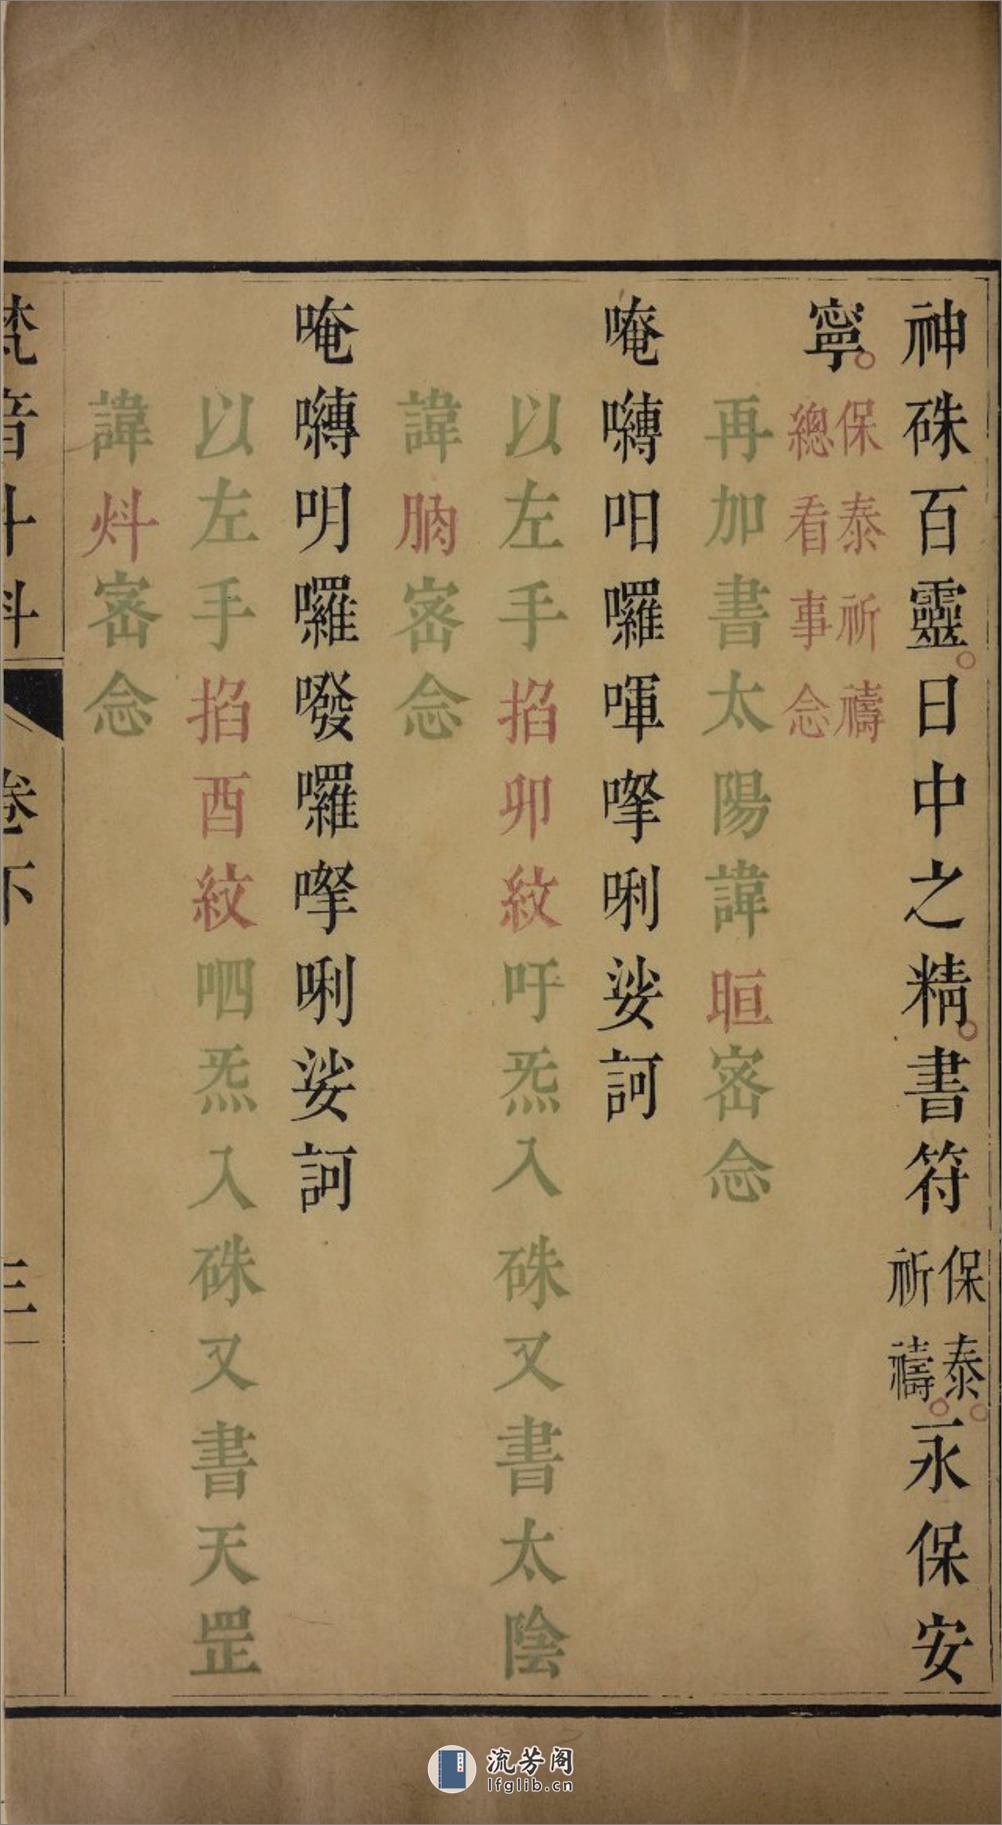 神硃百靈日中之精書符保泰祈禱永保安
寧保泰祈禱總看事念
再加書太陽諱晅密念
唵囀呬囉㖷㗚唎娑訶
以左手掐卯紋吁炁入硃又書太陰
諱朒密念
唵囀明囉㘔囉㗚唎娑訶
以左手掐酉紋呬炁入硃又書天罡
諱㶨密念
梵音斗科
卷下
三
流芳阁
lfglib.cn